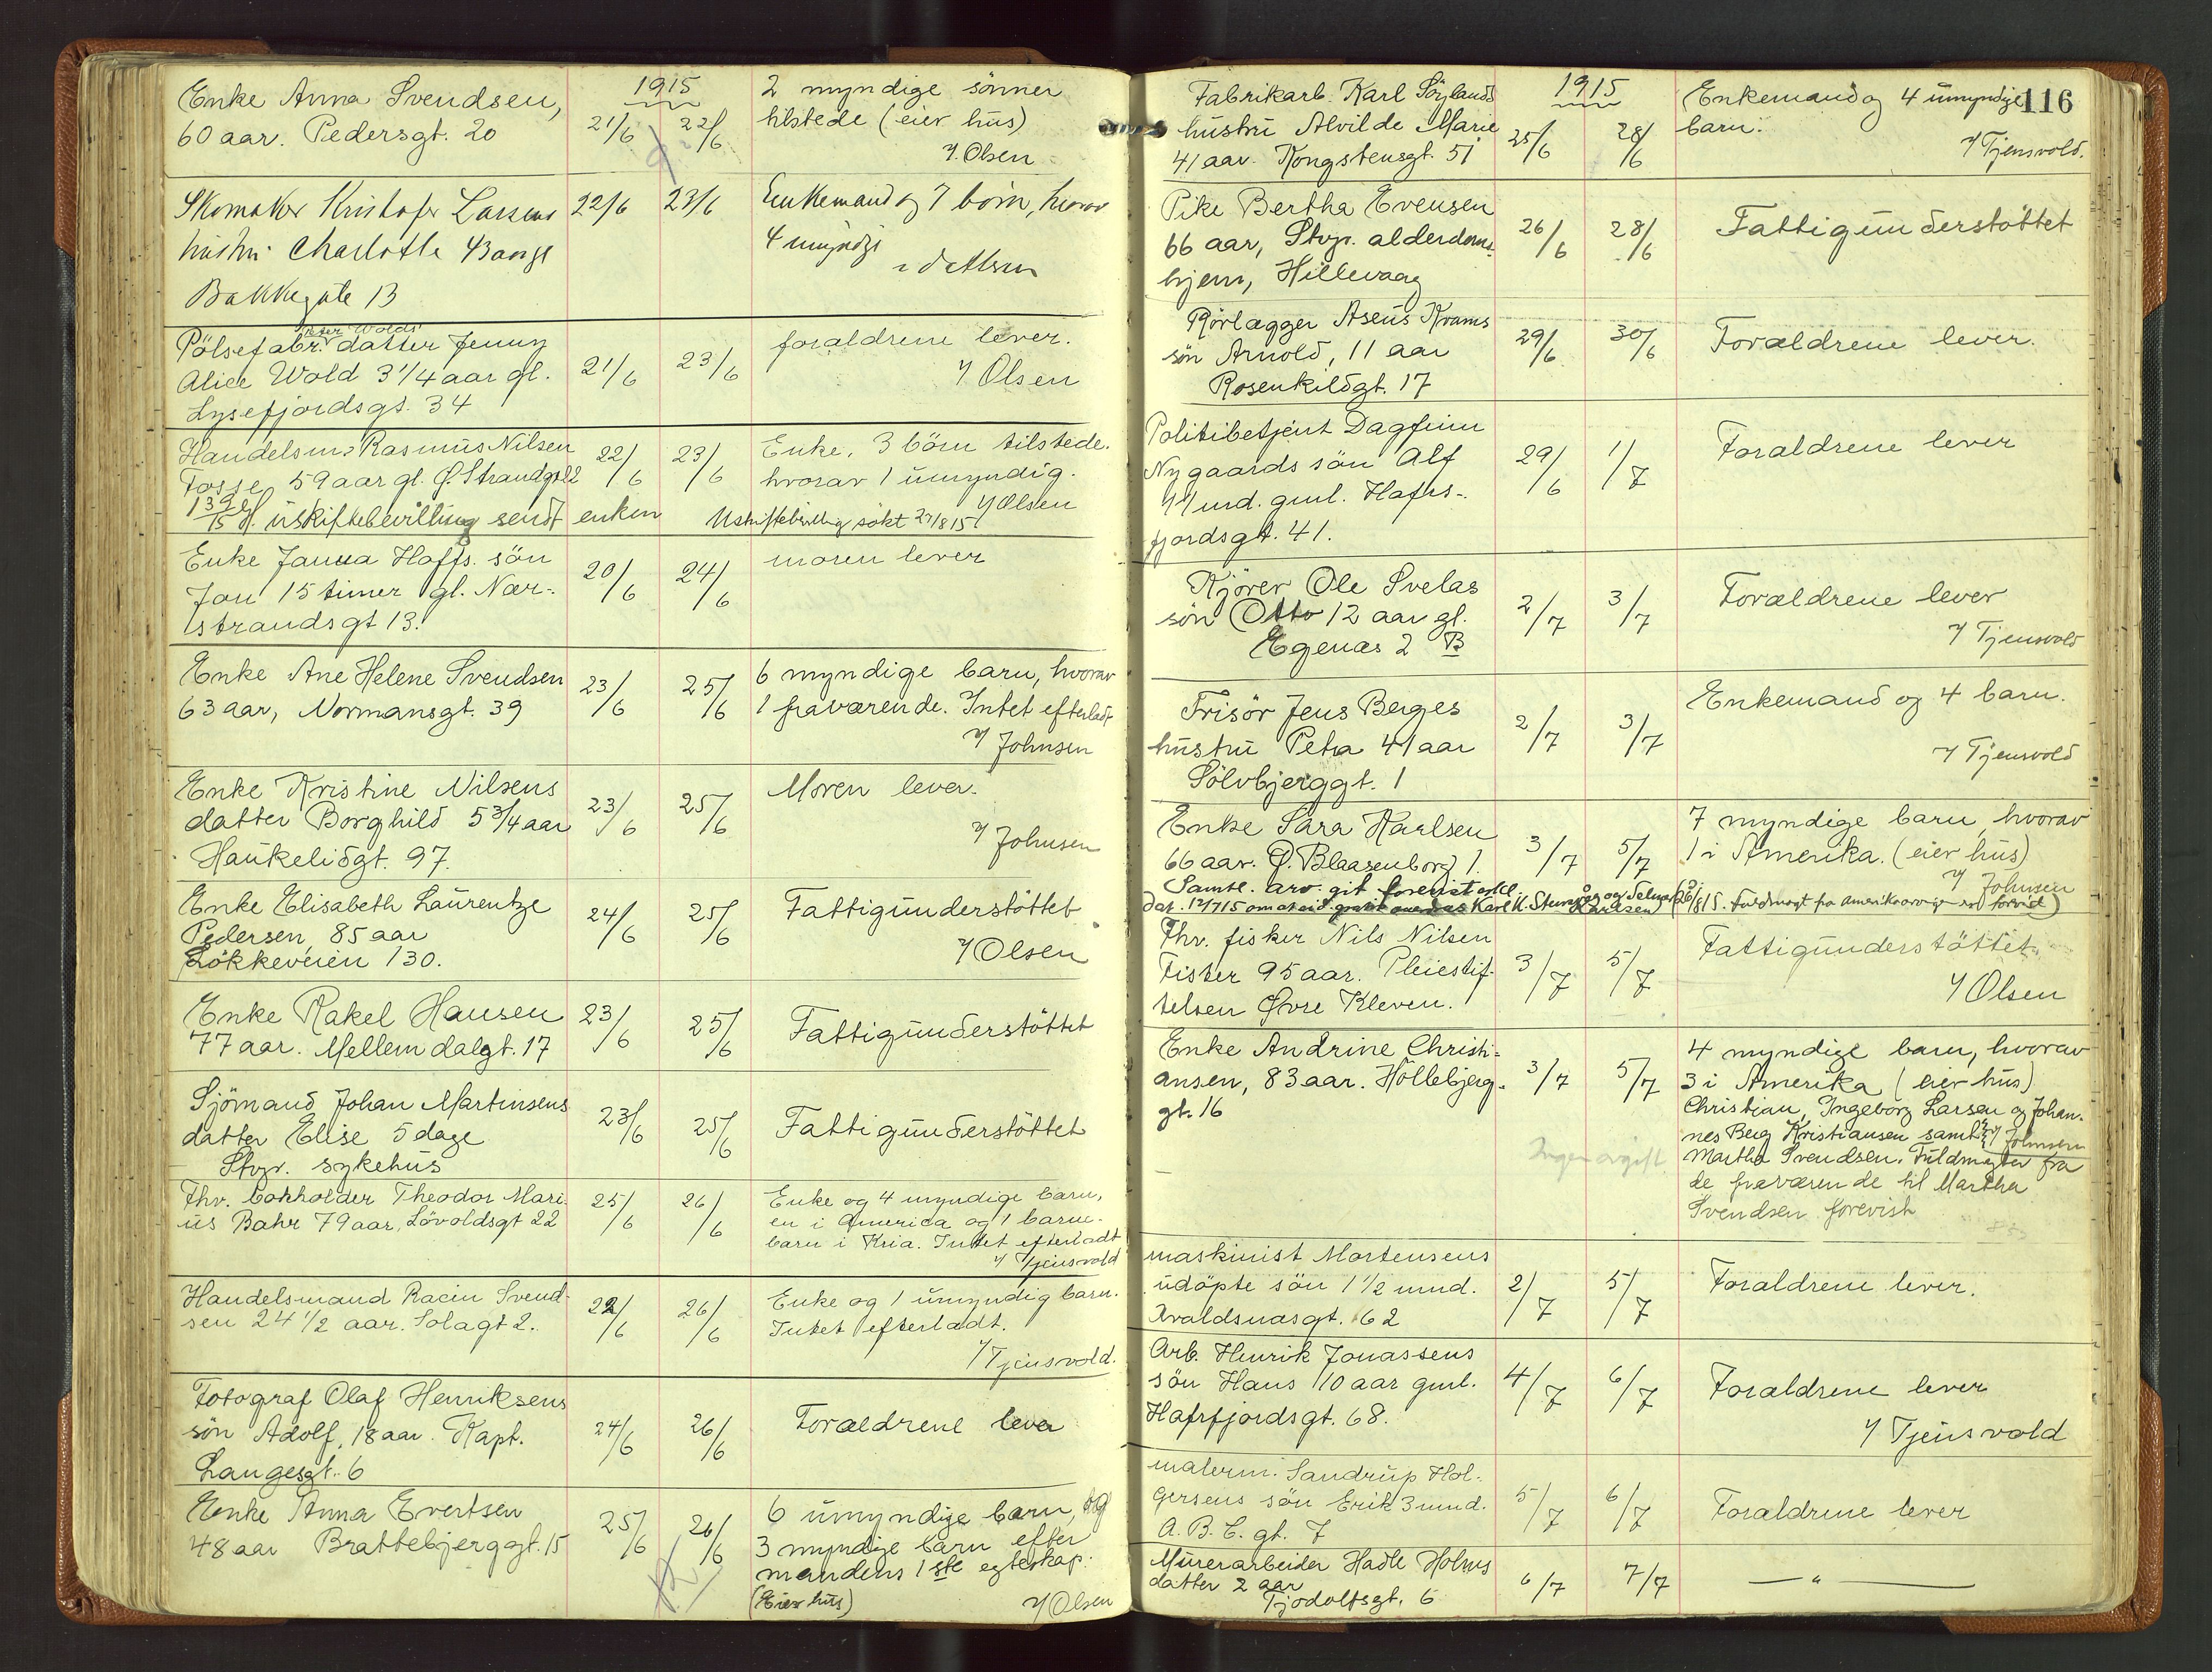 1915
Enke Anna Svendsen,
60 aar. Pedersgt. 20
21/6 22/6
2 myndige sönner
tilstede (eier hus)
Y. Olsen
Skomaker Kristofer Larsens
hustru Charlotte 43 aar gl
Bakkegate 13
22/6 23/6
Enkemand og 7 börn, hvorav
4 umyndige
Pölsefabr. Peter Wolds datter Jenny
Alice Wold 3 1/4 aar gl.
Lysefjordsgt. 34
21/6 23/6
foraldrene lever.
Y Olsen
Handelsm. Rasmus Nilsen
Fosse, 59 aar gl. Ø. Strandgt
22/6 23/6
Enke. 3 börn tilstede.
hvorav 1 umyndig.
Y Olsen
uskiftebevilling sendt enken
Uskiftebevillig sökt 27/8 15
Enke Janna Hoffs sön
Jon 15 timer gl. Nær-
strandsgt 13.
20/6 24/6
moren lever
Enke Ane Helene Svendsen
63 aar, Normansgt. 39
23/6 25/6
6 myndige barn, hvorav
1 fraværende. Intet efterladt
Y Johnsen
Enke Kristine Nilsens
datter Borghild 5 3/4 aar
Haukelidgt. 97.
23/6 25/6
Moren lever.
Y Johnsen
Enke Elisabeth Laurentze
Pedersen, 85 aar
Lökkeveien 130.
24/6 25/6
Fattigunderstöttet
Y Olsen
Enke Rakel Hansen
77 aar. Mellemdalgt. 17
23/6 25/6
Fattigunderstöttet
Sjömand Johan Martinsens
datter Elise 5 dage
Stvgr. sykehus
23/6 25/6
Fattigunderstöttet
Fhv. bokholder Theodor Mari-
us Bahr 79 aar, Lövoldsgt 22
25/6 26/6
Enke og 4 myndige barn,
en i America og 1 barne-
barn i Kria. Intet efterladt
Y Tjensvold
Handelsmand Racin Svend-
sen 24 1/2 aar. Solagt 2.
22/6 26/6
Enke og 1 umyndig barn.
Intet efterladt.
Y Tjensvold.
Fotograf Olaf Henriksens
sön Adolf, 18 aar. Kapt.
Langesgt. 6
24/6 26/6
Forældrene lever
Enke Anna Evertsen
48 aar Brattebjerggt. 15
25/6 26/6
6 umyndige barn, og
3 myndige barn efter
mandens 1ste egteskap.
(Eier hus)
Y Olsen
116
1915
Fabrikarb. Karl Söylands
hustru Alvilde Marie
41 aar. Kongstensgt. 51
25/6 28/6
Enkemand og 4 umyndige
barn.
Y Tjensvold.
Pike Bertha Evensen
66 aar, Stvgr. alderdoms-
hjem, Hillevaag
26/6 28/6
Fattigunderstöttet
Rörlægger Aseus Krams
sön Arnold, 11 aar
Rosenkildgt. 17
29/6 30/6
Forældrene lever.
Politibetjent Dagfinn
Nygaards sön Alf
11 mnd. gml. Hafrs-
fjordsgt. 41.
29/6 1/7
Foraldrene lever
Kjörer Ole Svelas
sön Otto 12 aar gl.
Egenæs 2 B
2/7 3/7
Forældrene lever
Y Tjensvold
Frisör Jens Berges
hustru Petra 41 aar
Sölvbjerggt. 1
2/7 3/7
Enkemand og 4 barn.
Y Tjensvold
Enke Sara Karlsen
66 aar. Ø. Blaasenborg 1.
3/7 5/7
7 myndige barn, hvorav
1 i Amerika. (eier hus)
Y Johnsen
Fhv. fisker Nils Nilsen
Fister 95 aar. Pleiestif-
telsen Øvre Kleven.
3/7 5/7
Fattigunderstöttet.
Y Olsen
Enke Andrine Christi-
ansen, 83 aar. Hollebjerg-
gt. 16
3/7 5/7
4 myndige barn, hvorav
3 i Amerika (eier hus)
Christian, Ingeborg Larsen og Johan-
nes Berg Kristiansen samt Y Johnsen
Martha Svendsen. Fuldmagter fra
de fraværende til Martha
Svendsen forevist
Ingen avgift
maskinist Mortensens
udöpte sön 1 1/2 mnd.
Avaldsnæsgt. 62
2/7 5/7
Foraldrene lever.
Arb. Henrik Jonassens
sön Hans 10 aar gml.
Hafrfjordsgt. 68.
4/7 6/7
Foraldrene lever
Y Tjensvold
malerm. Sandrup Hol-
gersens sön Erik 3 mnd.
A. B. C. gt. 7
5/7 6/7
Foraldrene lever
Murerarbeider Hadle Holms
datter 2 aar
Tjodolfsgt. 6
6/7 7/7
— " —